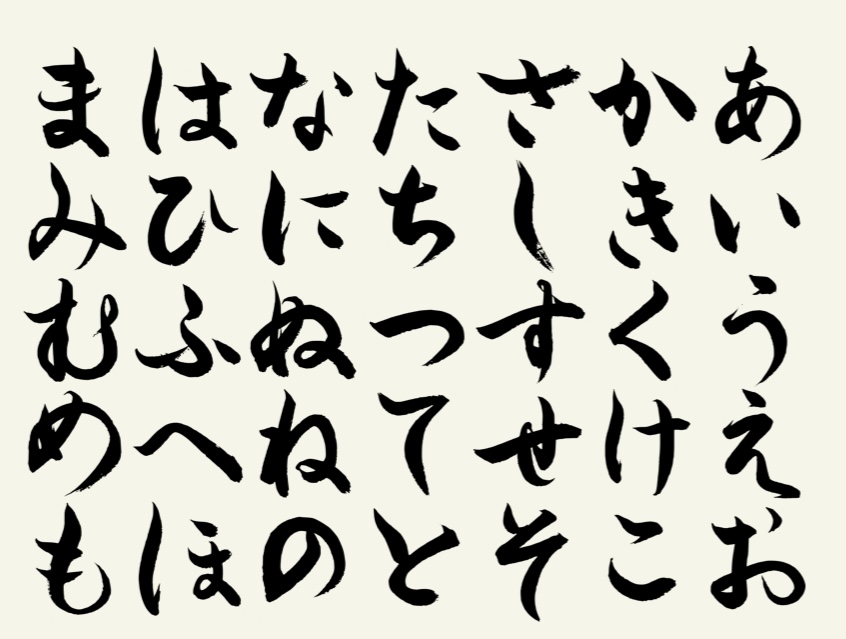 あいうえお
かきくけこ
さしすせそ
たちつてと
なにぬねの
はひふへほ
まみむめも